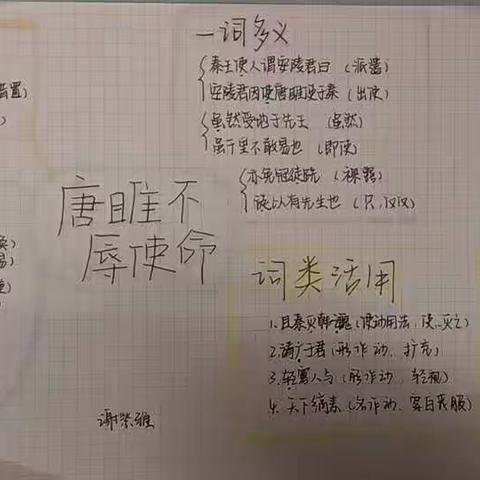 置)
)
易)
)
唐雎不
辱使命
一词多义
秦王使人谓安陵君曰 (派遣)
安陵君因使唐雎使于秦 (出使)
虽然受地于先王 (虽然)
虽千里不敢易也 (即使)
亦免冠徒跣 (裸露)
徒以有先生也 (只, 仅仅)
词类活用
1.且秦灭韩魏 (使动用法, 使…灭亡)
2.请广于君 (形作动, 扩充)
3.轻寡人与 (形作动, 轻视)
4.天下缟素 (名作动, 穿白丧服)
谢紫雅